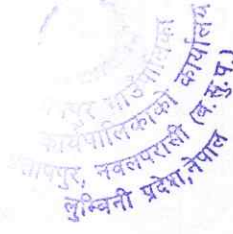 गाउँपालिका
कार्यपालिकाको कार्यालय
नवलपरासी (ब.सु.प.)
लुम्बिनी प्रदेश, नेपाल